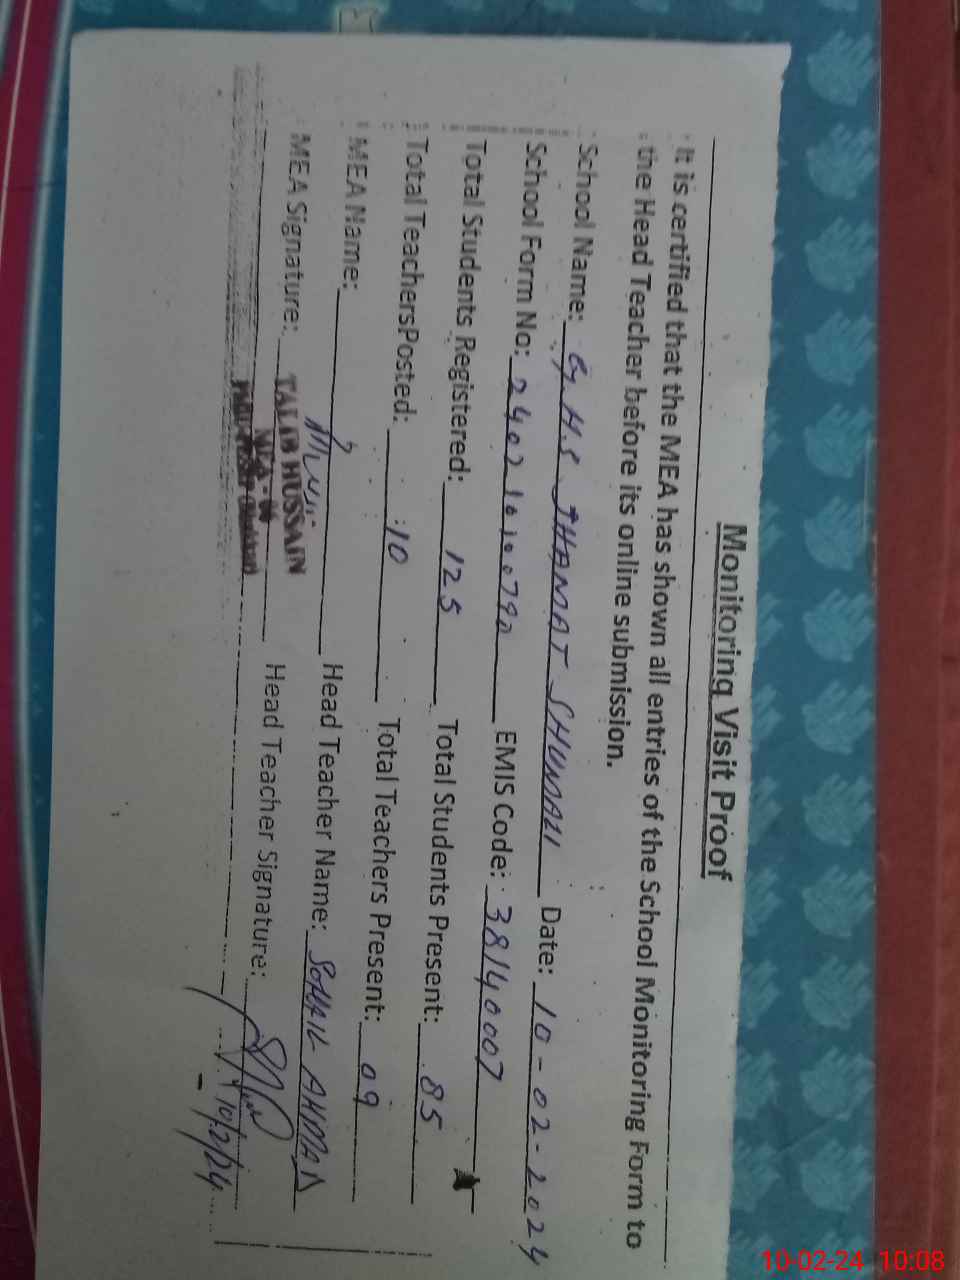 Monitoring Visit Proof
It is certified that the MEA has shown all entries of the School Monitoring Form to
the Head Teacher before its online submission.
School Name: G.H.S JHAMAT SHUMALI Date: 10-02-2024
School Form No: EMIS Code: 38140007
Total Students Registered: 125 Total Students Present: 85
Total TeachersPosted: 10 Total Teachers Present: 09
MEA Name: Head Teacher Name: SOHAIL AHMAD
MEA Signature: TALIB HUSSAIN Head Teacher Signature:
MEA-
10/2/24
10-02-24 10:08